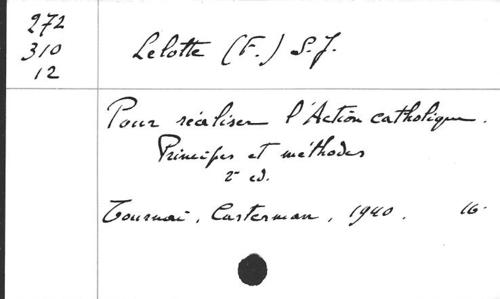 272
310
12
Lelotte (F.) S.J.
Pour réaliser l'Action catholique.
Principes et méthodes
2e ed.
Tournai, Casterman, 1940. 16